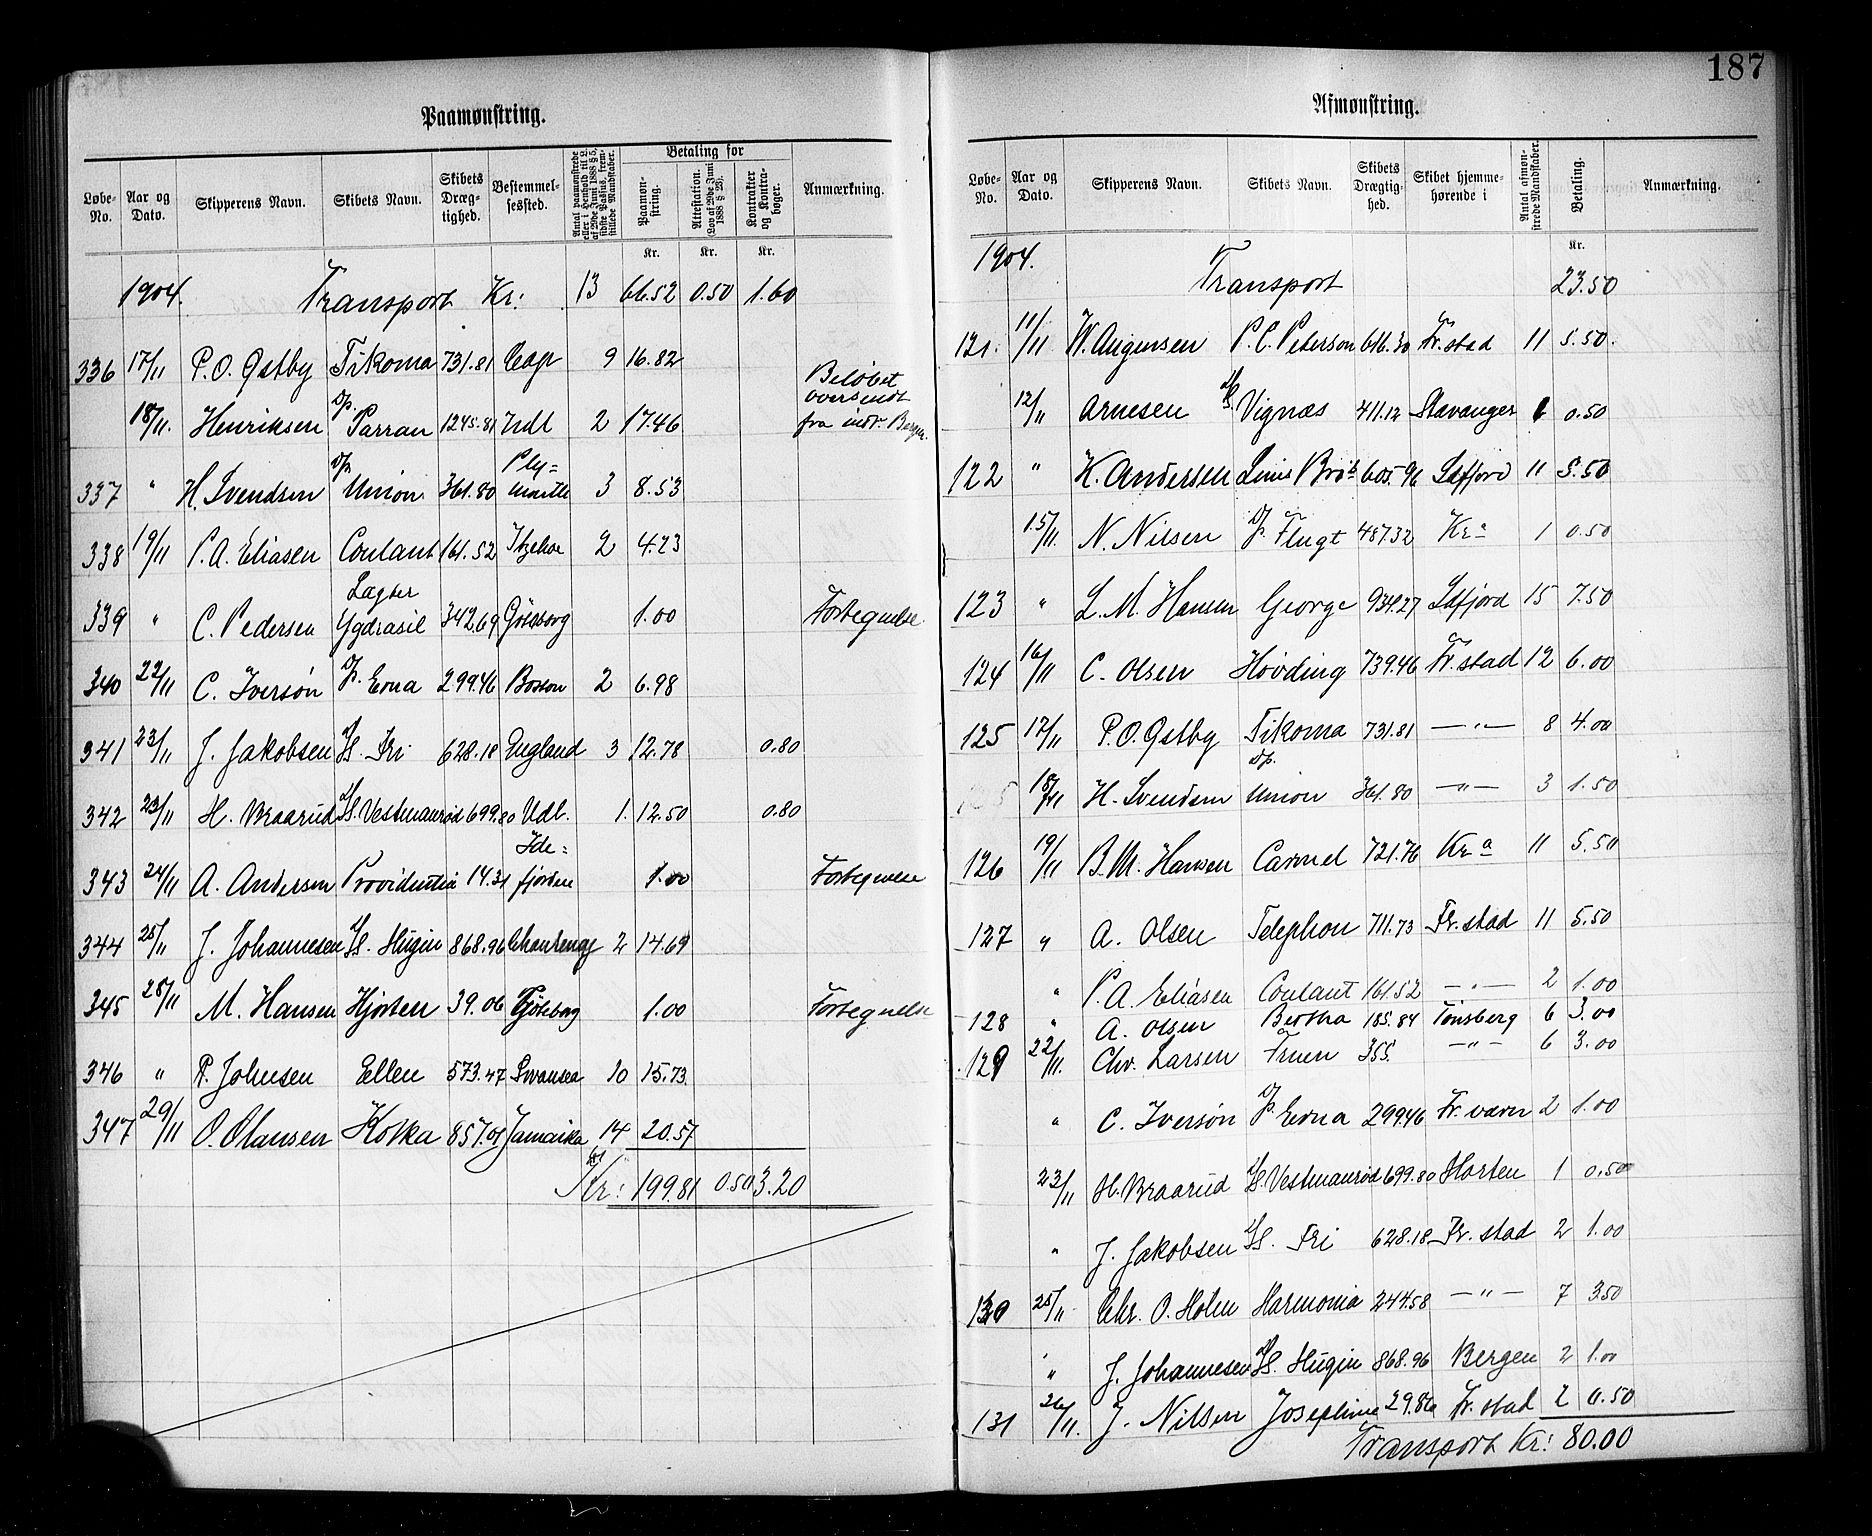 187
Paamønstring.
Løbe-No. Aar og Dato. Skipperens Navn. Skibets Navn. Skibets Dræg-tighed. Bestemmel-sessted. Antal paamønstrede eller i Henhold til L. af 29de Juni 1888 § 5, sidste Passus, frem-stillede Mandskaber. Betaling for Paamøn-string. Attestation. (Lov af 29de Juni 1888 § 23). Kontrakter og Kontra-bøger. Anmærkning.
Kr. Kr. Kr.
1904. Transport Kr: 13 66.52 0.50 1.60
336 17/11 P.O. Østby Tikoma 731.81 Cap 9 16.82
18/11. Henriksen D/p. Parran 1245.81 Udl 2 17.46 Beløbet oversendt fra indr. Bergen.
337 " H. Svendsen D/p Union 361.80 Ply=mouth 3 8.53
338 19/11 P.A. Eliasen Coulant 161.52 Itzehoe 2 4.23
339 " C. Pedersen Lægter Ygdrasil 342.69 Göteborg 1.00 Forhegnelse.
340 22/11 C. Iversøn D/p. Edna 299.46 Boston 2 6.98
341 23/11 J. Jakobsen S/S. Fri 628.18 England 3 12.78 0.80
342 23/11 H. Braarud S/S. Vestmanrød 699.80 Udl. 1. 12.50 0.80
343 24/11 A. Andersen Providentia 14.31 Ide=fjorden 1.00
344 25/11 J. Johannesen S/S. Hugin 868.96 2 14.69
345 28/11 M. Hansen Hjorten 39.06 Gøteborg 1.00
346 " P. Johnsen Ellen 573.47 Swansea 10 15.73
347 29/11 O. Olausen Kotka 857.01 Jamaika 14 20.57
61
Kr: 199.81 0.50 3.20
Afmønstring.
Løbe-No. Aar og Dato. Skipperens Navn. Skibets Navn. Skibets Drægtig-hed. Skibet hjemme-hørende i Antal afmøn-strede Mandskaber. Betaling. Anmærkning.
Kr.
1904. Transport 23.50
121. 11/11 W. Augensen P.C. Peterson 616.30 Fr.stad 11 5.50.
12/11 Arnesen S/S. Vignæs 411.12 Stavanger 1 0.50
122 " K. Andersen Linus Bro's 605.96 Ldfjord 11 5.50
15/11. N. Nilsen D/p. Flugt 487.32 Kra 1 0.50
123 " L.M. Hansen George 934.27 Ldfjord 15 7.50
124 16/11 C. Olsen Høvding 739.46 Fr.stad 12 6.00
125 17/11 P.O. Østby Tikoma 731.81 —"— 8 4.00
18/11 H. Svendsen D/p. Union 361.80 —"— 3 1.50
126 19/11 B.M. Hansen Carmel 721.76 Kra 11 5.50
127 " A. Olsen Telephon 711.73 Fr.stad 11 5.50
" P.A. Eliasen Coulant 161.52 —"— 2 1.00
128 " A. Olsen Bertha 185.84 Tønsberg 6 3.00
129 22/11. Chr. Larsen Fruen 355. —"— 6 3.00
" C. Iversøn D/p. Edna 299.46 Fr.værn 2 1.00
23/11 H. Braarud S/S. Vestmanrød 699.80 Horten 1 0.50
" J. Jakobsen S/S. Fri 628.18 Fr.stad 2 1.00
130 25/11 Chr. O. Holm Harmonia 244.58 —"— 7 3.50
" J. Johannesen S/S. Hugin 868.96 Bergen 2 1.00
131 26/11. J. Nilsen Josephine 29.86 Fr.stad 2 0.50
Transport Kr: 80.00